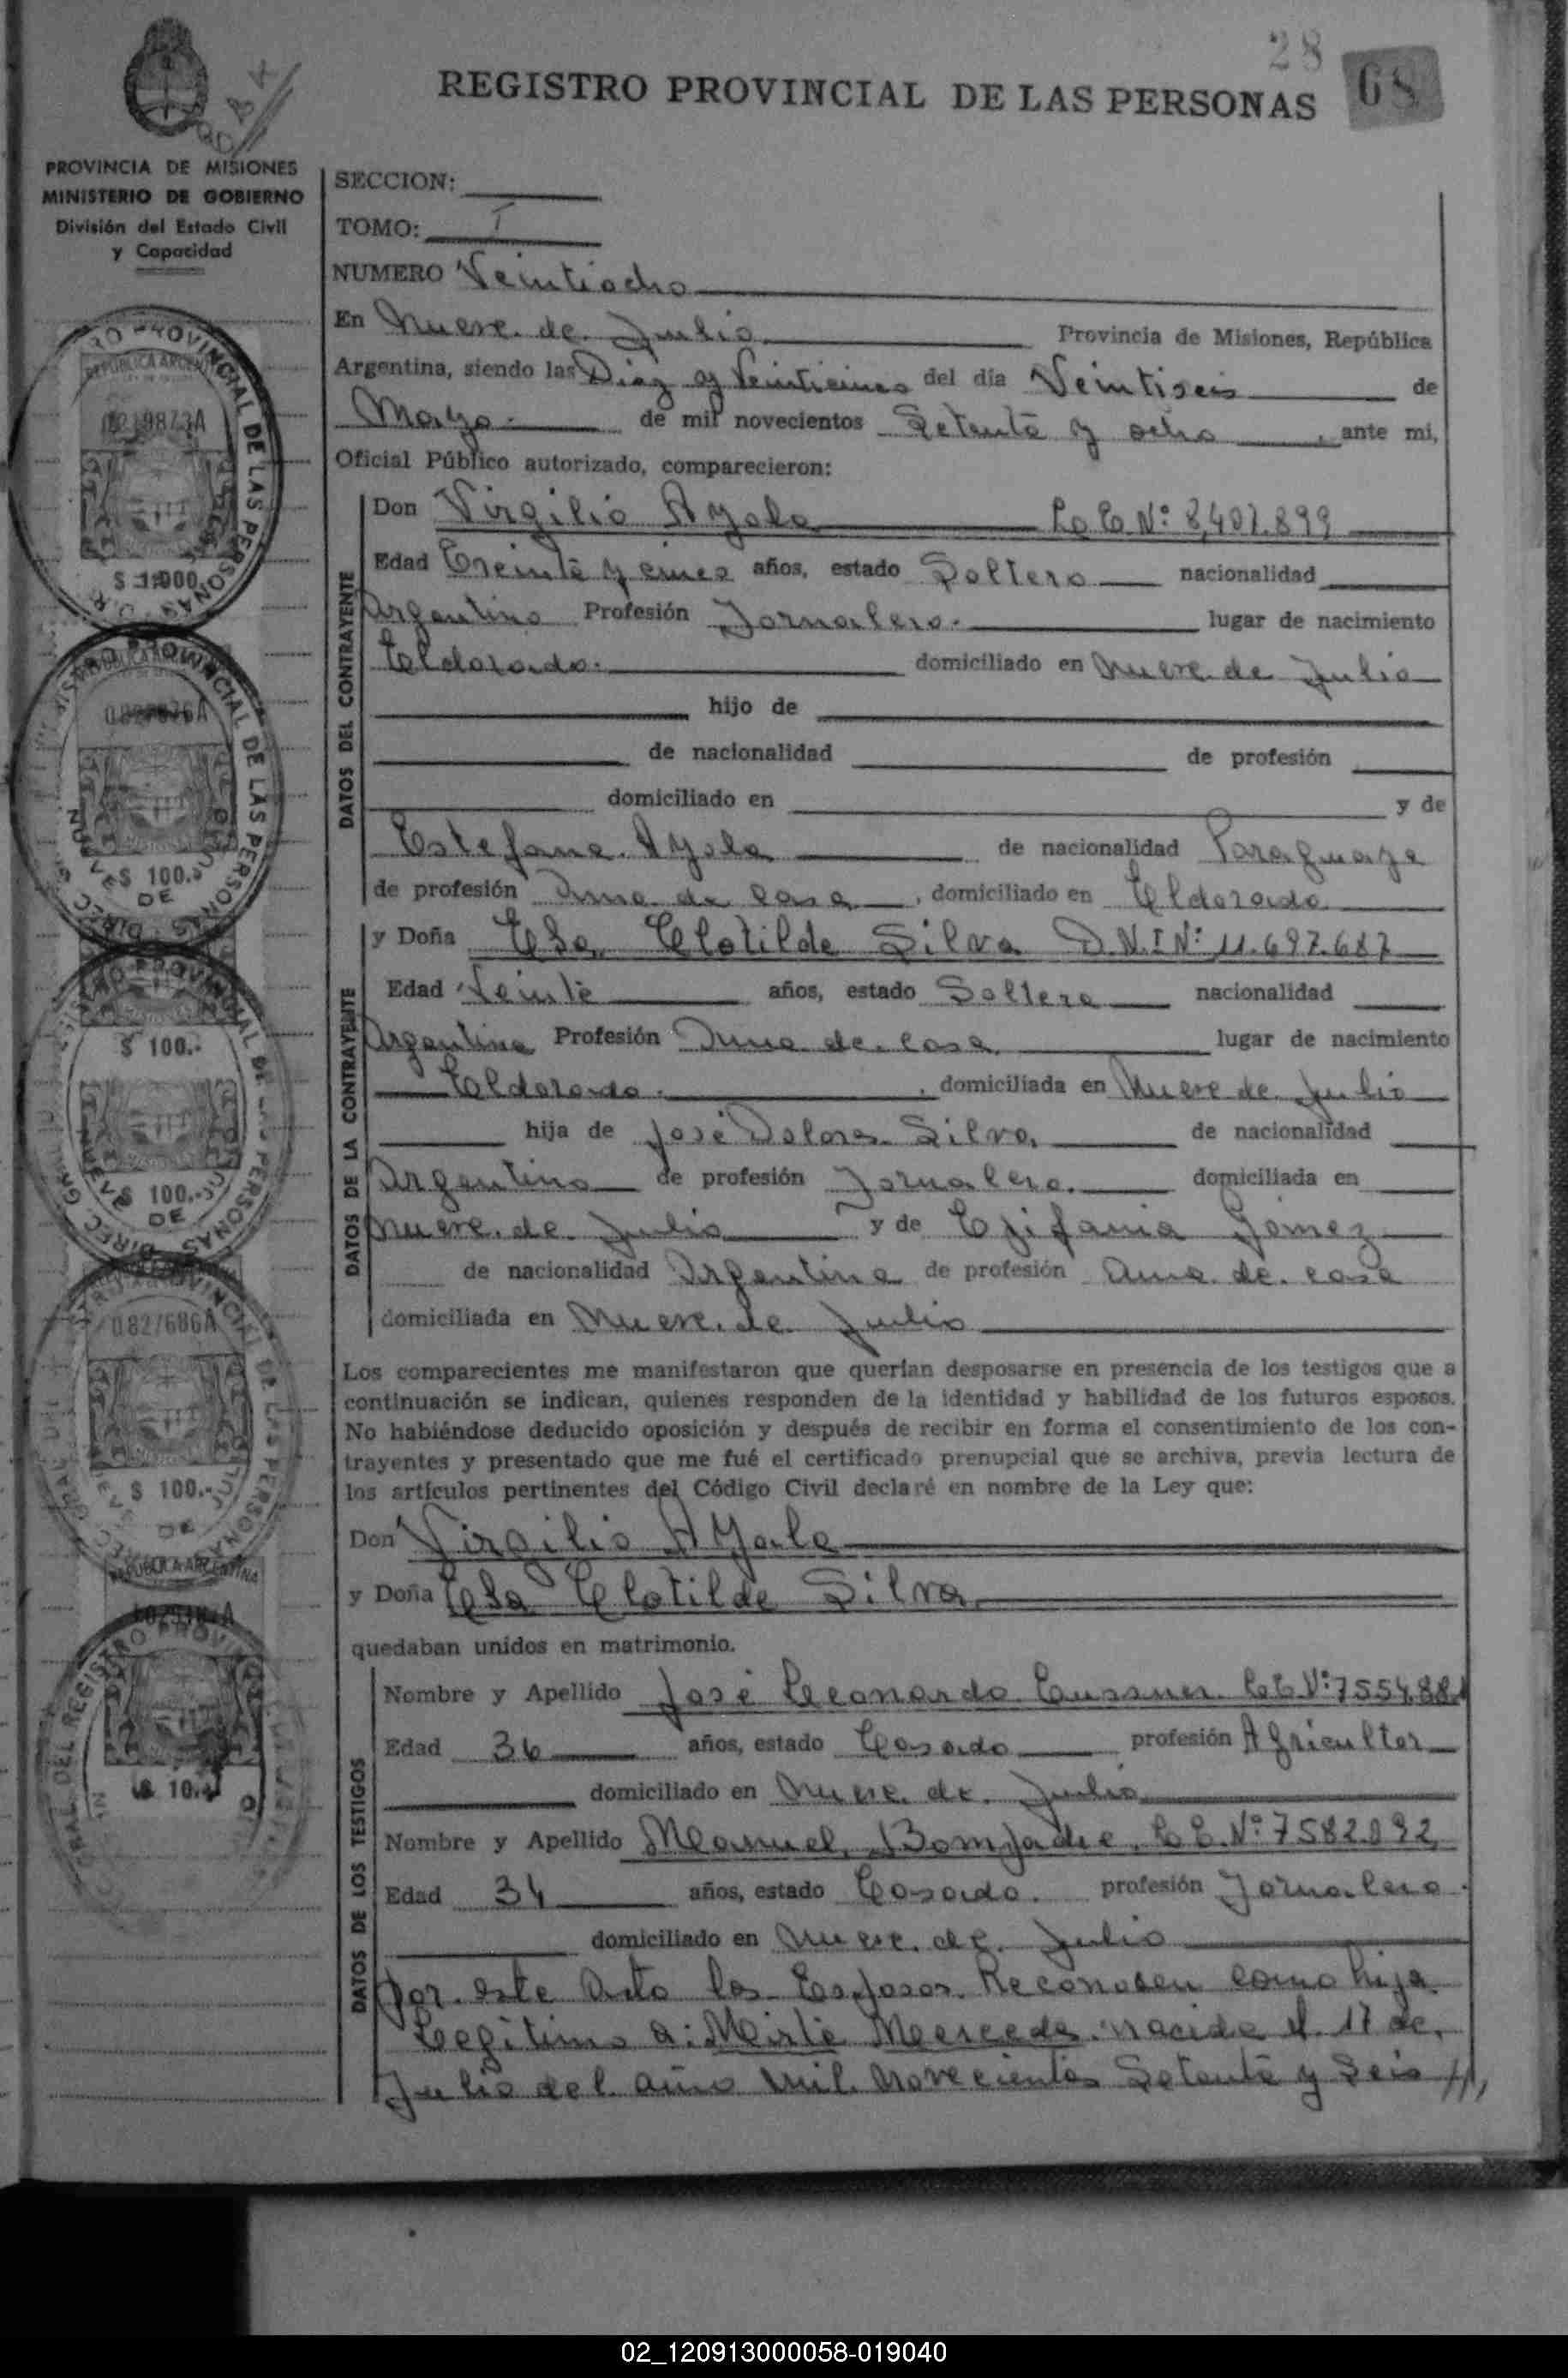 28
68
REGISTRO PROVINCIAL DE LAS PERSONAS
PROVINCIA DE MISIONES
MINISTERIO DE GOBIERNO
División del Estado Civil
y Capacidad
SECCION:
TOMO: I
NUMERO Veintiocho
En Nueve de Julio Provincia de Misiones, República
Argentina, siendo las Diez y Veinticinco del día Veintiseis de
Mayo de mil novecientos Setenta y ocho, ante mi,
Oficial Público autorizado, comparecieron:
DATOS DEL CONTRAYENTE
Don Virgilio Ayala L.E.Nº 8,401.899
Edad Treinta y cinco años, estado Soltero nacionalidad
Argentino Profesión Jornalero. lugar de nacimiento
Eldorado. domiciliado en Nueve de Julio
hijo de
de nacionalidad de profesión
domiciliado en y de
Estefana Ayala de nacionalidad Paraguaya
de profesión Ama de casa, domiciliado en Eldorado
DATOS DE LA CONTRAYENTE
y Doña Elsa Clotilde Silva D.N.I Nº 11.697.687
Edad Veinte años, estado Soltera nacionalidad
Argentina Profesión Ama de casa lugar de nacimiento
Eldorado. domiciliada en Nueve de Julio
hija de José Dolores Silva, de nacionalidad
Argentino de profesión Jornalero. domiciliada en
Nueve de Julio y de Epifania Gómez
de nacionalidad Argentina de profesión ama de casa
domiciliada en Nueve de Julio
Los comparecientes me manifestaron que querían desposarse en presencia de los testigos que a
continuación se indican, quienes responden de la identidad y habilidad de los futuros esposos.
No habiéndose deducido oposición y después de recibir en forma el consentimiento de los con-
trayentes y presentado que me fué el certificado prenupcial que se archiva, previa lectura de
los artículos pertinentes del Código Civil declaré en nombre de la Ley que:
Don Virgilio Ayala
y Doña Elsa Clotilde Silva
quedaban unidos en matrimonio.
DATOS DE LOS TESTIGOS
Nombre y Apellido José Leonardo
Edad 36 años, estado Casado profesión Agricultor
domiciliado en Nueve de Julio
Nombre y Apellido Manuel L.E.Nº 7582092
Edad 34 años, estado Casado. profesión Jornalero.
domiciliado en Nueve de Julio
por este Acto los Esposos Reconocen como hija
Legitima a: Mirta Mercedes nacida el 17 de
Julio del año mil novecientos Setenta y Seis //,
REPUBLICA ARGENTINA
$ 1.000
$ 100.-
$ 100.-
$ 100.-
0827686A
$ 100.-
REPUBLICA ARGENTINA
$ 10.-
02_120913000058-019040